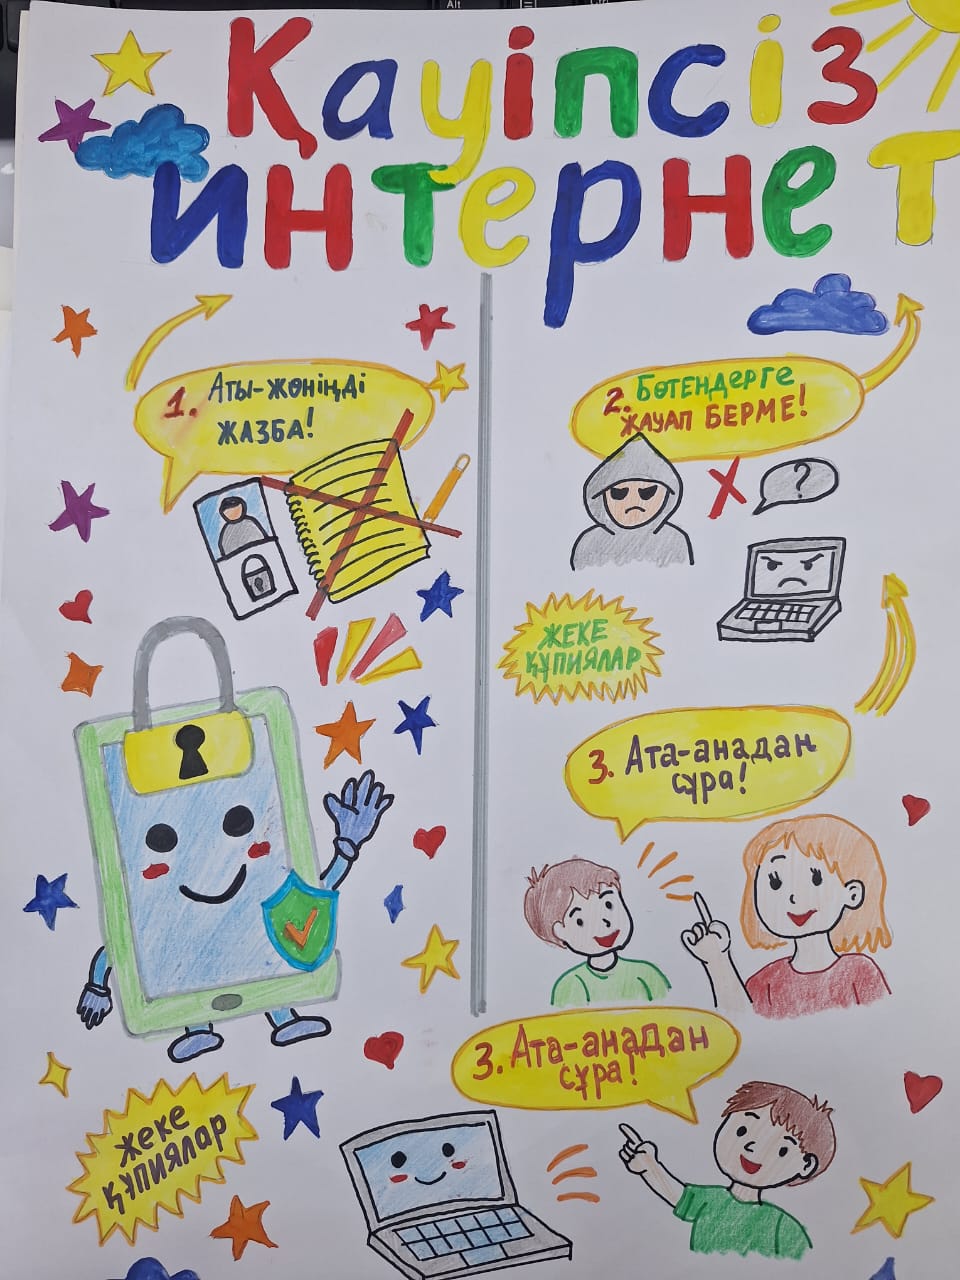 Қауіпсіз
интернет
1. Аты-жөніңді
ЖАЗБА!
2. Бөтендерге
ЖАУАП БЕРМЕ!
?
ЖЕКЕ
ҚҰПИЯЛАР
3. Ата-анадан
сұра!
3. Ата-анадан
сұра!
жеке
құпиялар
Alt